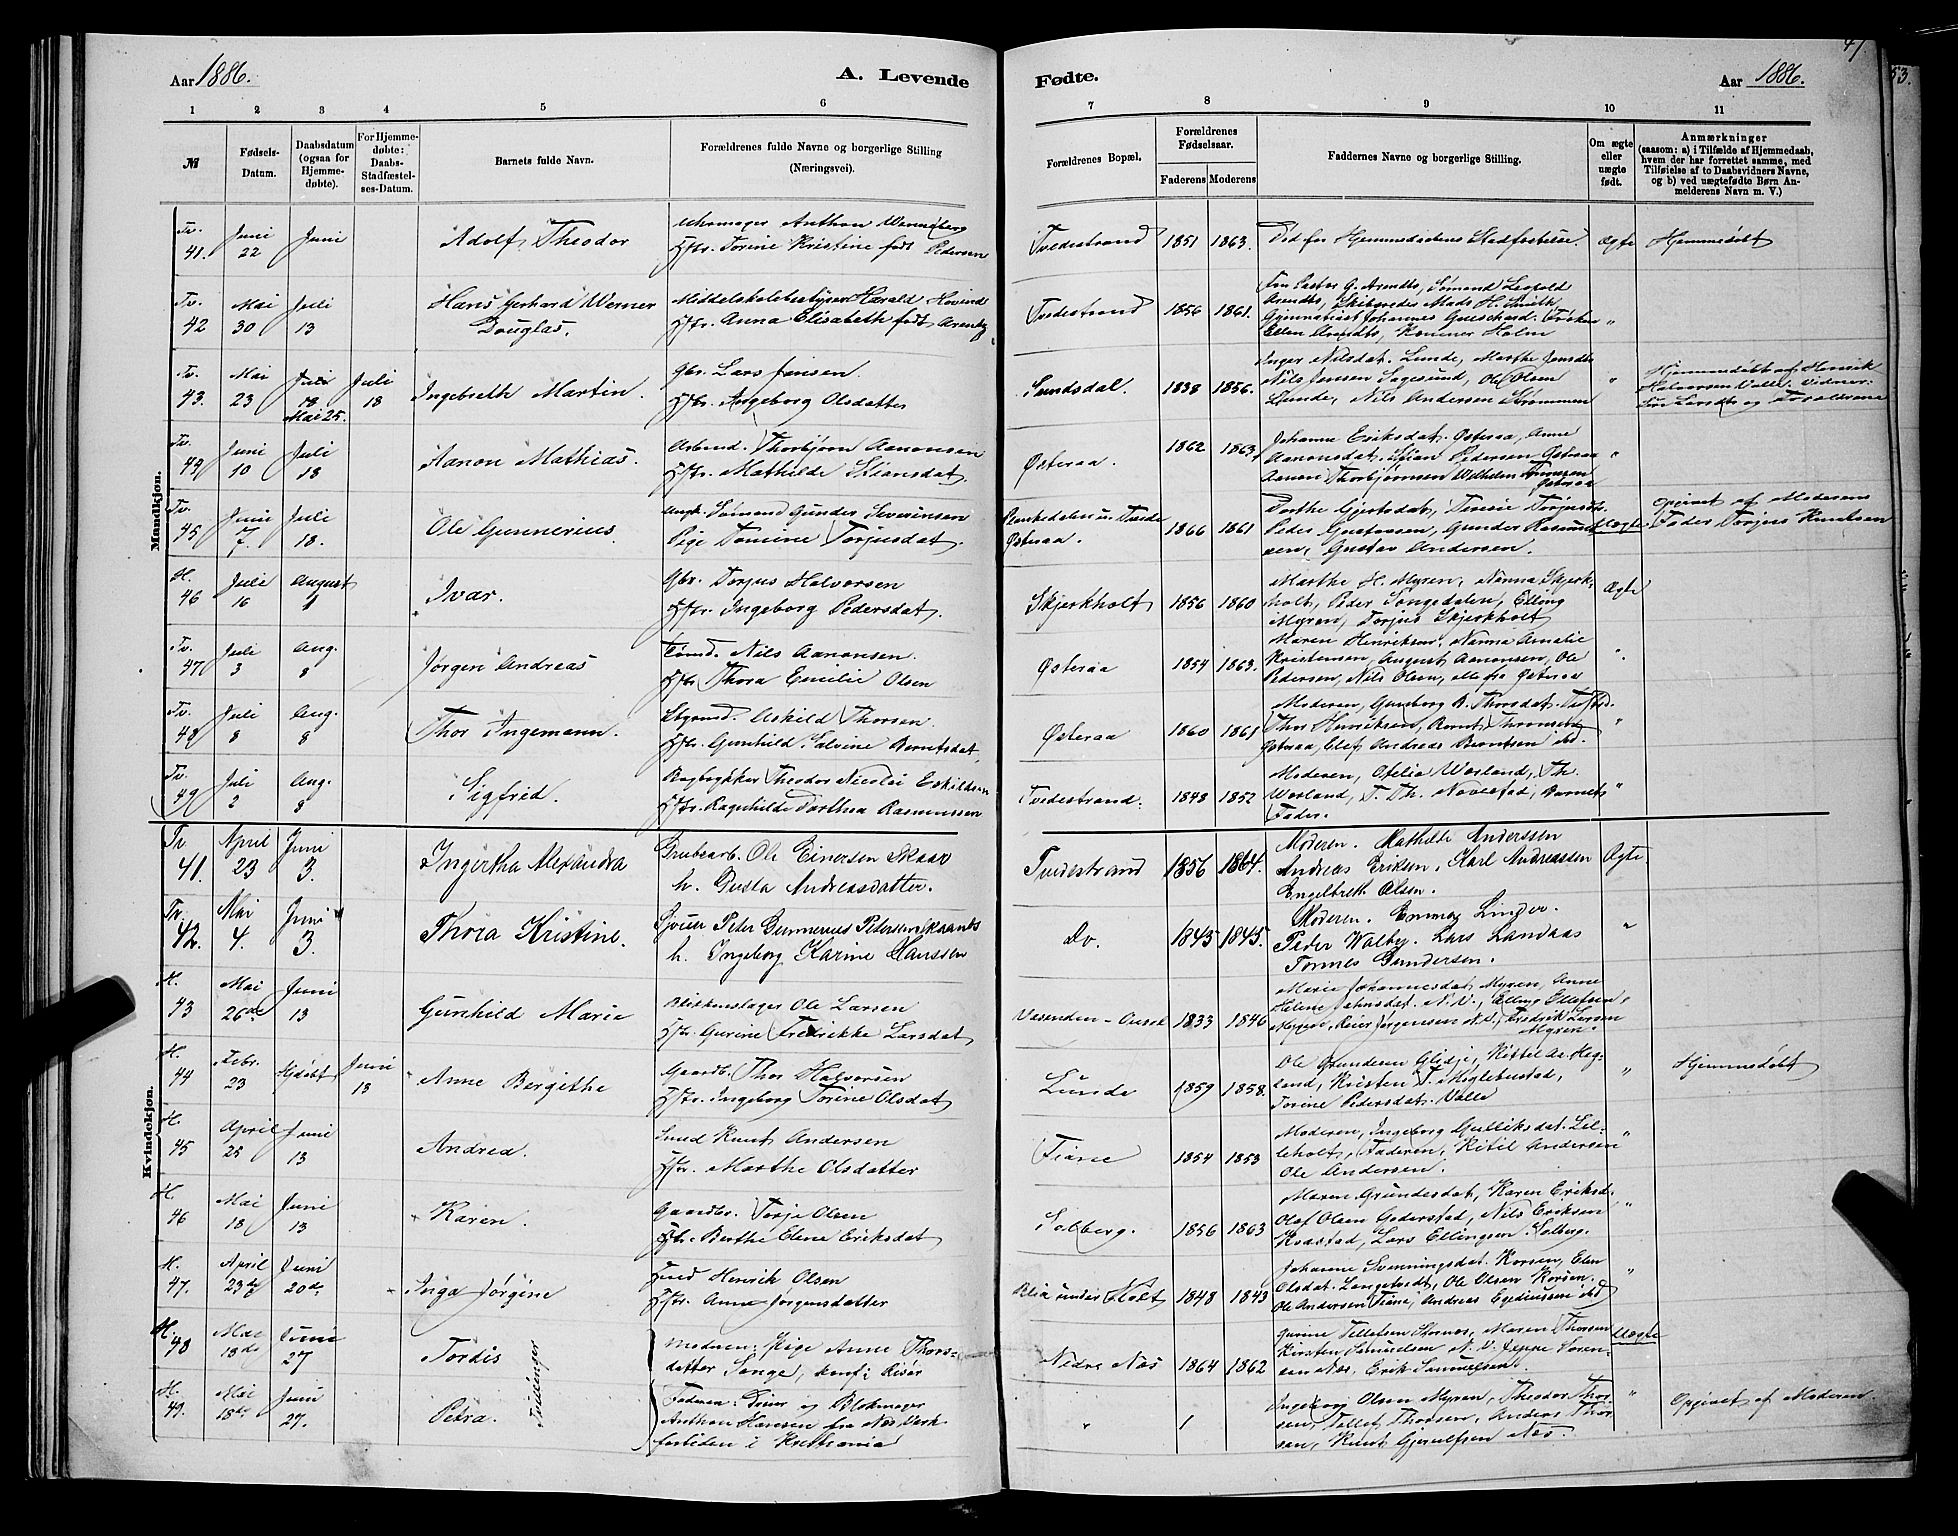 47.
53.
Aar 1886.
A. Levende
Fødte.
Aar 1886.
1 2 3 4 5 6 7 8 9 10 11
№
Fødsels-
Datum.
Daabsdatum
(ogsaa for
Hjemme-
døbte).
For Hjemme-
døbte:
Daabs-
Stadfæstel-
ses-Datum.
Barnets fulde Navn.
Forældrenes fulde Navne og borgerlige Stilling
(Næringsvei).
Forældrenes Bopæl.
Forældrenes
Fødselsaar.
Faderens Moderens
Faddernes Navne og borgerlige Stilling.
Om ægte
eller
uægte
født.
Anmærkninger
(saasom: a) i Tilfælde af Hjemmedaab,
hvem der har forrettet samme, med
Tilføielse af to Daabsvidners Navne,
og b) ved uægtefødte Børn An-
melderens Navn m. V.)
Mandkjøn.
Tv. 41. Juni 22 Juni
Adolf Theodor
Uhrmager Anthon Wennberg
Hstr. Torine Kristine født Pedersen
Tvedestrand 1851 1863.
Død før Hjemmedaabens Stadfæstelse. Ægte Hjemmedøbt
Tv. 42 Mai 30 Juli 13
Hans Gerhard Werner
Douglas.
Middelskolebestyrer Harald Hovind
Hstr. Anna Elisabeth født Arendtz
Tvedestrand 1856 1861.
Fru Pastor G. Arendts, Sømand Leopold
Arendts, Skibsreder Mads H. Smith,
Gymnasiast Johannes Frøken
Ellen Arendts, Holm "
Tv. 43. Mai 23 Juli 18 Mai 25. Juli 18
Ingebreth Martin.
Gbr. Lars Jensen.
Hstr. Ingeborg Olsdatter
Sundsdal. 1838 1856.
Inger Nilsdat. Lunde, Marthe Jensdat
Nils Jensen Sagesund, Ole Olsen
Lunde, Nils Andersen Strømmen "
Hjemmedøbt af Henrik
Halvorsen Valle. Vidner:
Lars og Forældrene
Tv. 44 Juni 10 Juli 18
Aanon Mathias.
Arbmd. Thorbjørn Aanonsen
Hstr. Mathilde Stiansdat.
Østeraa. 1862 1863.
Johanne Eriksdat. Østeraa, Anne
Aanonsdat. Stian Pedersen Østeraa
Aanon Thorbjørnsen Wilhelm
Østeraa "
Tv. 45 Juni 7. Juli 18.
Ole Gunnerius.
Ungk. Sømand Gunder Severinsen
Pige Tomine Torjusdat.
Østeraa. 1866 1861
Dorthe Gjertsdat, Terese Torjusd.
Peder Gustavsen, Gunder Rasmus-
sen, Gustav Andersen. Uægte
Opgivet af Moderens
Fader Torjus Knudsen
H. 46 Juli 16 August 1
Ivar.
Gbr. Torjus Halvorsen
Hstr. Ingeborg Pedersdat.
Skjerkholt 1856 1860
Marthe H. Myren, Nanna Skjerk-
holt, Peder Songedalen, Elling
Myren, Torjus Skjerkholt Ægte
Tv. 47 Juli 3 Aug. 8
Jørgen Andreas
Tømd. Nils Aanonsen.
Hstr. Thora Emilie Olsen
Østeraa 1854 1863.
Maren Henriksen, Nanna Amalie
Kristensen, August Aanonsen, Ole
Pedersen, Nils Olsen, alle fra Østeraa "
Tv. 48 Juli 8 Aug. 8
Thor Ingemann.
Styrmd. Askild Thorsen.
Hstr. Gunhild Salvine Berntsdat.
Østeraa 1860 1861
Moderen, Gunborg B. Thorsdat.
Thor Henriksen, Bernt
Østeraa, Elef Andreas Berntsen ibd. "
Tv. 49 Juli 2 Aug. 8
Sigfred.
Bogtrykker Theodor Nicolai Eskildsen
Hstr. Ragnhilde Dorthea Rasmussen
Tvedestrand. 1848 1852
Moderen, Ofelia Worland, Th.
Worland, T. Th. Navestad, Barnets
Fader. "
Kvindekjøn.
Tv. 41. April 23 Juni 3.
Ingertha Alexandra
Grubearb. Ole Einersen Skaar
h. Gusta Andreasdatter.
Tvedestrand 1856 1864.
Moderen. Mathilde Anderssen
Andreas Eriksen, Karl Andreassen
Engelbreth Olsen. Ægte
Tv. 42. Mai 4. Juni 3.
Thora Kristine.
Peder Gunnerius Pedersen
h. Ingeborg Karine Hanssen
Do. 1843 1845.
Moderen. Emma Linder.
Peder Walby. Lars Landaas
Tønnes Gundersen. "
H. 43 Mai 26de Juni 13
Gunhild Marie
Blikkenslager Ole Larsen
Hstr. Gurine Fredrikke Larsdat
1833 1846
Marie Johannesdat Myren, Anne
Helene N.V., Elling Ellefsen
Myren, Reier Jørgensen N.V., Fredrik Larsen
Myren. "
H. 44 Febr. 23 Hjdøbt Juni 13
Anne Bergithe
Gaardb. Thor Halvorsen
Hstr. Ingeborg Torine Olsdat
Lunde 1859 1858.
Ole Gundersen Kittil Aa. Heg-
land, Kristen T. Miglebustad,
Torine Pedersdat. Valle "
Hjemmedøbt
H. 45 April 22 Juni 13
Andrea.
Smed Knut Andersen
Hstr. Marthe Olsdatter
Fiane 1854 1853
Moderen, Ingeborg Gulliksdat. Lil-
leholt, Faderen, Kitil Andersen
Ole Andersen. "
H. 46 Mai 18 Juni 13
Karen.
Gaardbr. Torje Olsen
Hstr. Berthe Elene Eriksdat
Solberg. 1856 1863
Maren Gundersdat, Karen Eriksd.
Olaf Olsen Goderstad, Nils Eriksen
Kvastad, Lars Ellingsen Solberg. "
H. 47. April 23de Juni 20de.
Inga Jørgine
Henrik Olsen
Hstr. Anne Jørgensdatter
Blia under Holt 1848 1843
Johanne Svenningsdat. Korsen, Elen
Olsdat. Langetvedt, Ole Olsen Korsen.
Ole Andersen Fiane, Andreas Egediussen ibd "
H. 48 Mai 18de Juni 27
Tordis
Tvillinger
Moderen: Pige Anne Thors-
datter Songe, konf. i Risør
Nedre Næs 1864 1862
Gurine Tellefsen Stornæs, Maren Thorsen
Kirsten Samuelsen N.V. Jeppe Søren-
sen Næs, Erik Samuelsen. Uægte
H. 49. Mai 18de Juni 27.
Petra.
Faderen: Dreier og Blokmager
Anthon Hansen fra Næs Værk
fortiden i Kristiania
"
Ingeborg Olsen Myren, Theodor Thor-
sen, Tellef Thorsen, Anders Thor-
sen, Knut Gjerulfsen Næs. "
Opgivet af Moderen